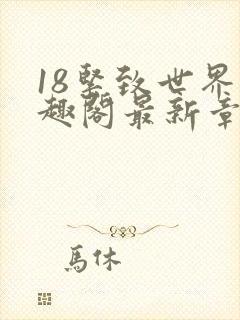 18坚致世界
趣阁最新章
馬休